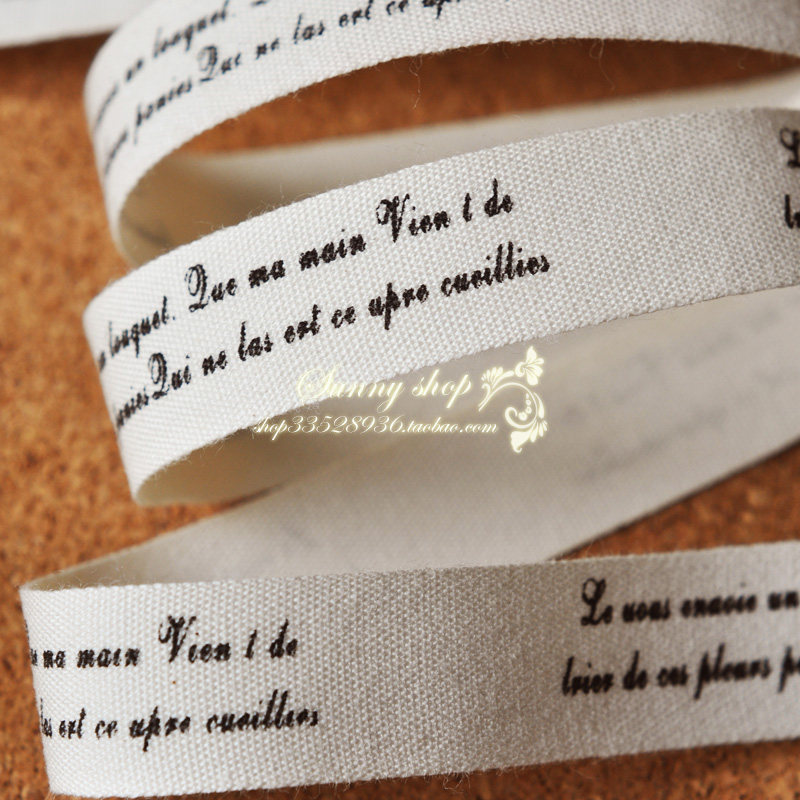 un louquet. Q
las ert ce apre
ponies Que ne
L
louquet. Que ma main Vien t de
ponies Qui ne las ert ce apre cueillies
Sunny shop
shop33528936.taobao.com
ma main Vien t de
las ert ce apre cueillies
Le uous enaoie un
lrier de ces pleurs